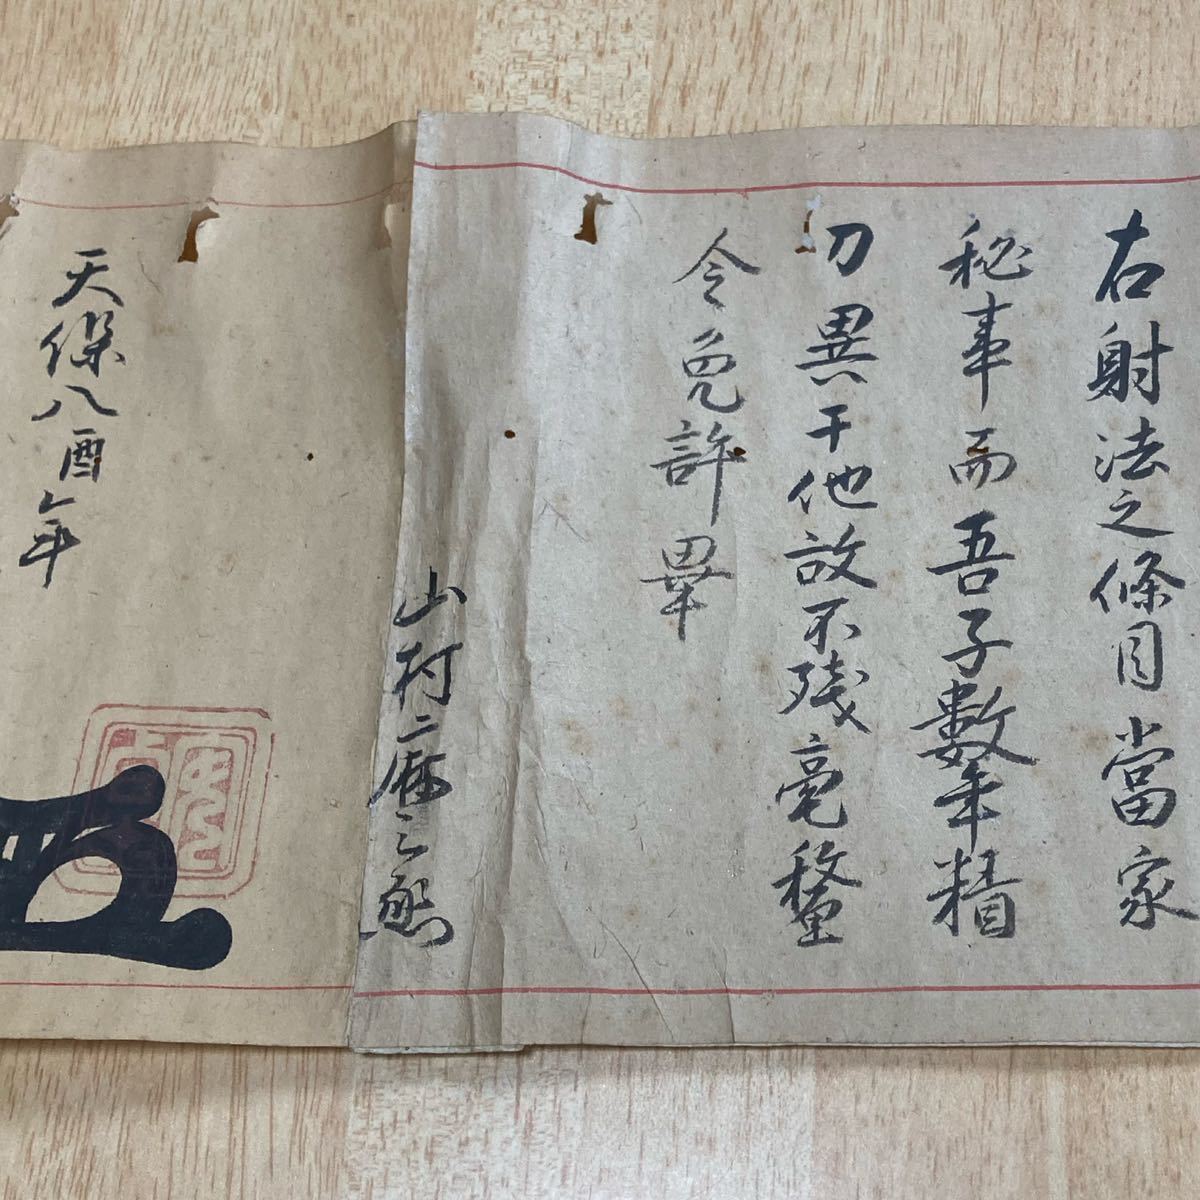 右射法之條目當家
秘事而吾子數年精
刀異于他故不残毫釐
令免許畢
山村二
天保八酉年